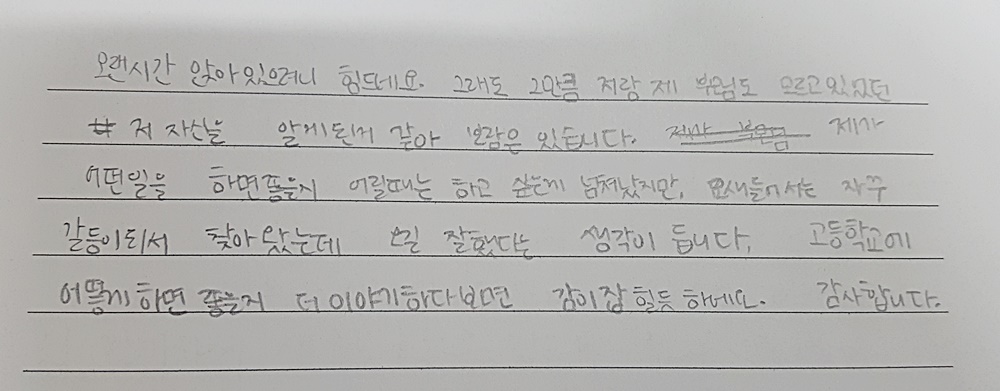 오랜시간 앉아있으려니 힘드네요. 그래도 그만큼 저랑 제 부모님도 모르고있었던
저 자신을 알게된거 같아 보람은 있습니다. 제가
어떤일을 하면좋을지 어릴때는 하고 싶은게 넘쳐났지만, 요새들어서는 자꾸
갈등이되서 찾아왔는데 오길 잘했다는 생각이 듭니다. 고등학교에
어떻게하면 좋을지 더 이야기하다보면 감이잡힐듯 하네요. 감사합니다.